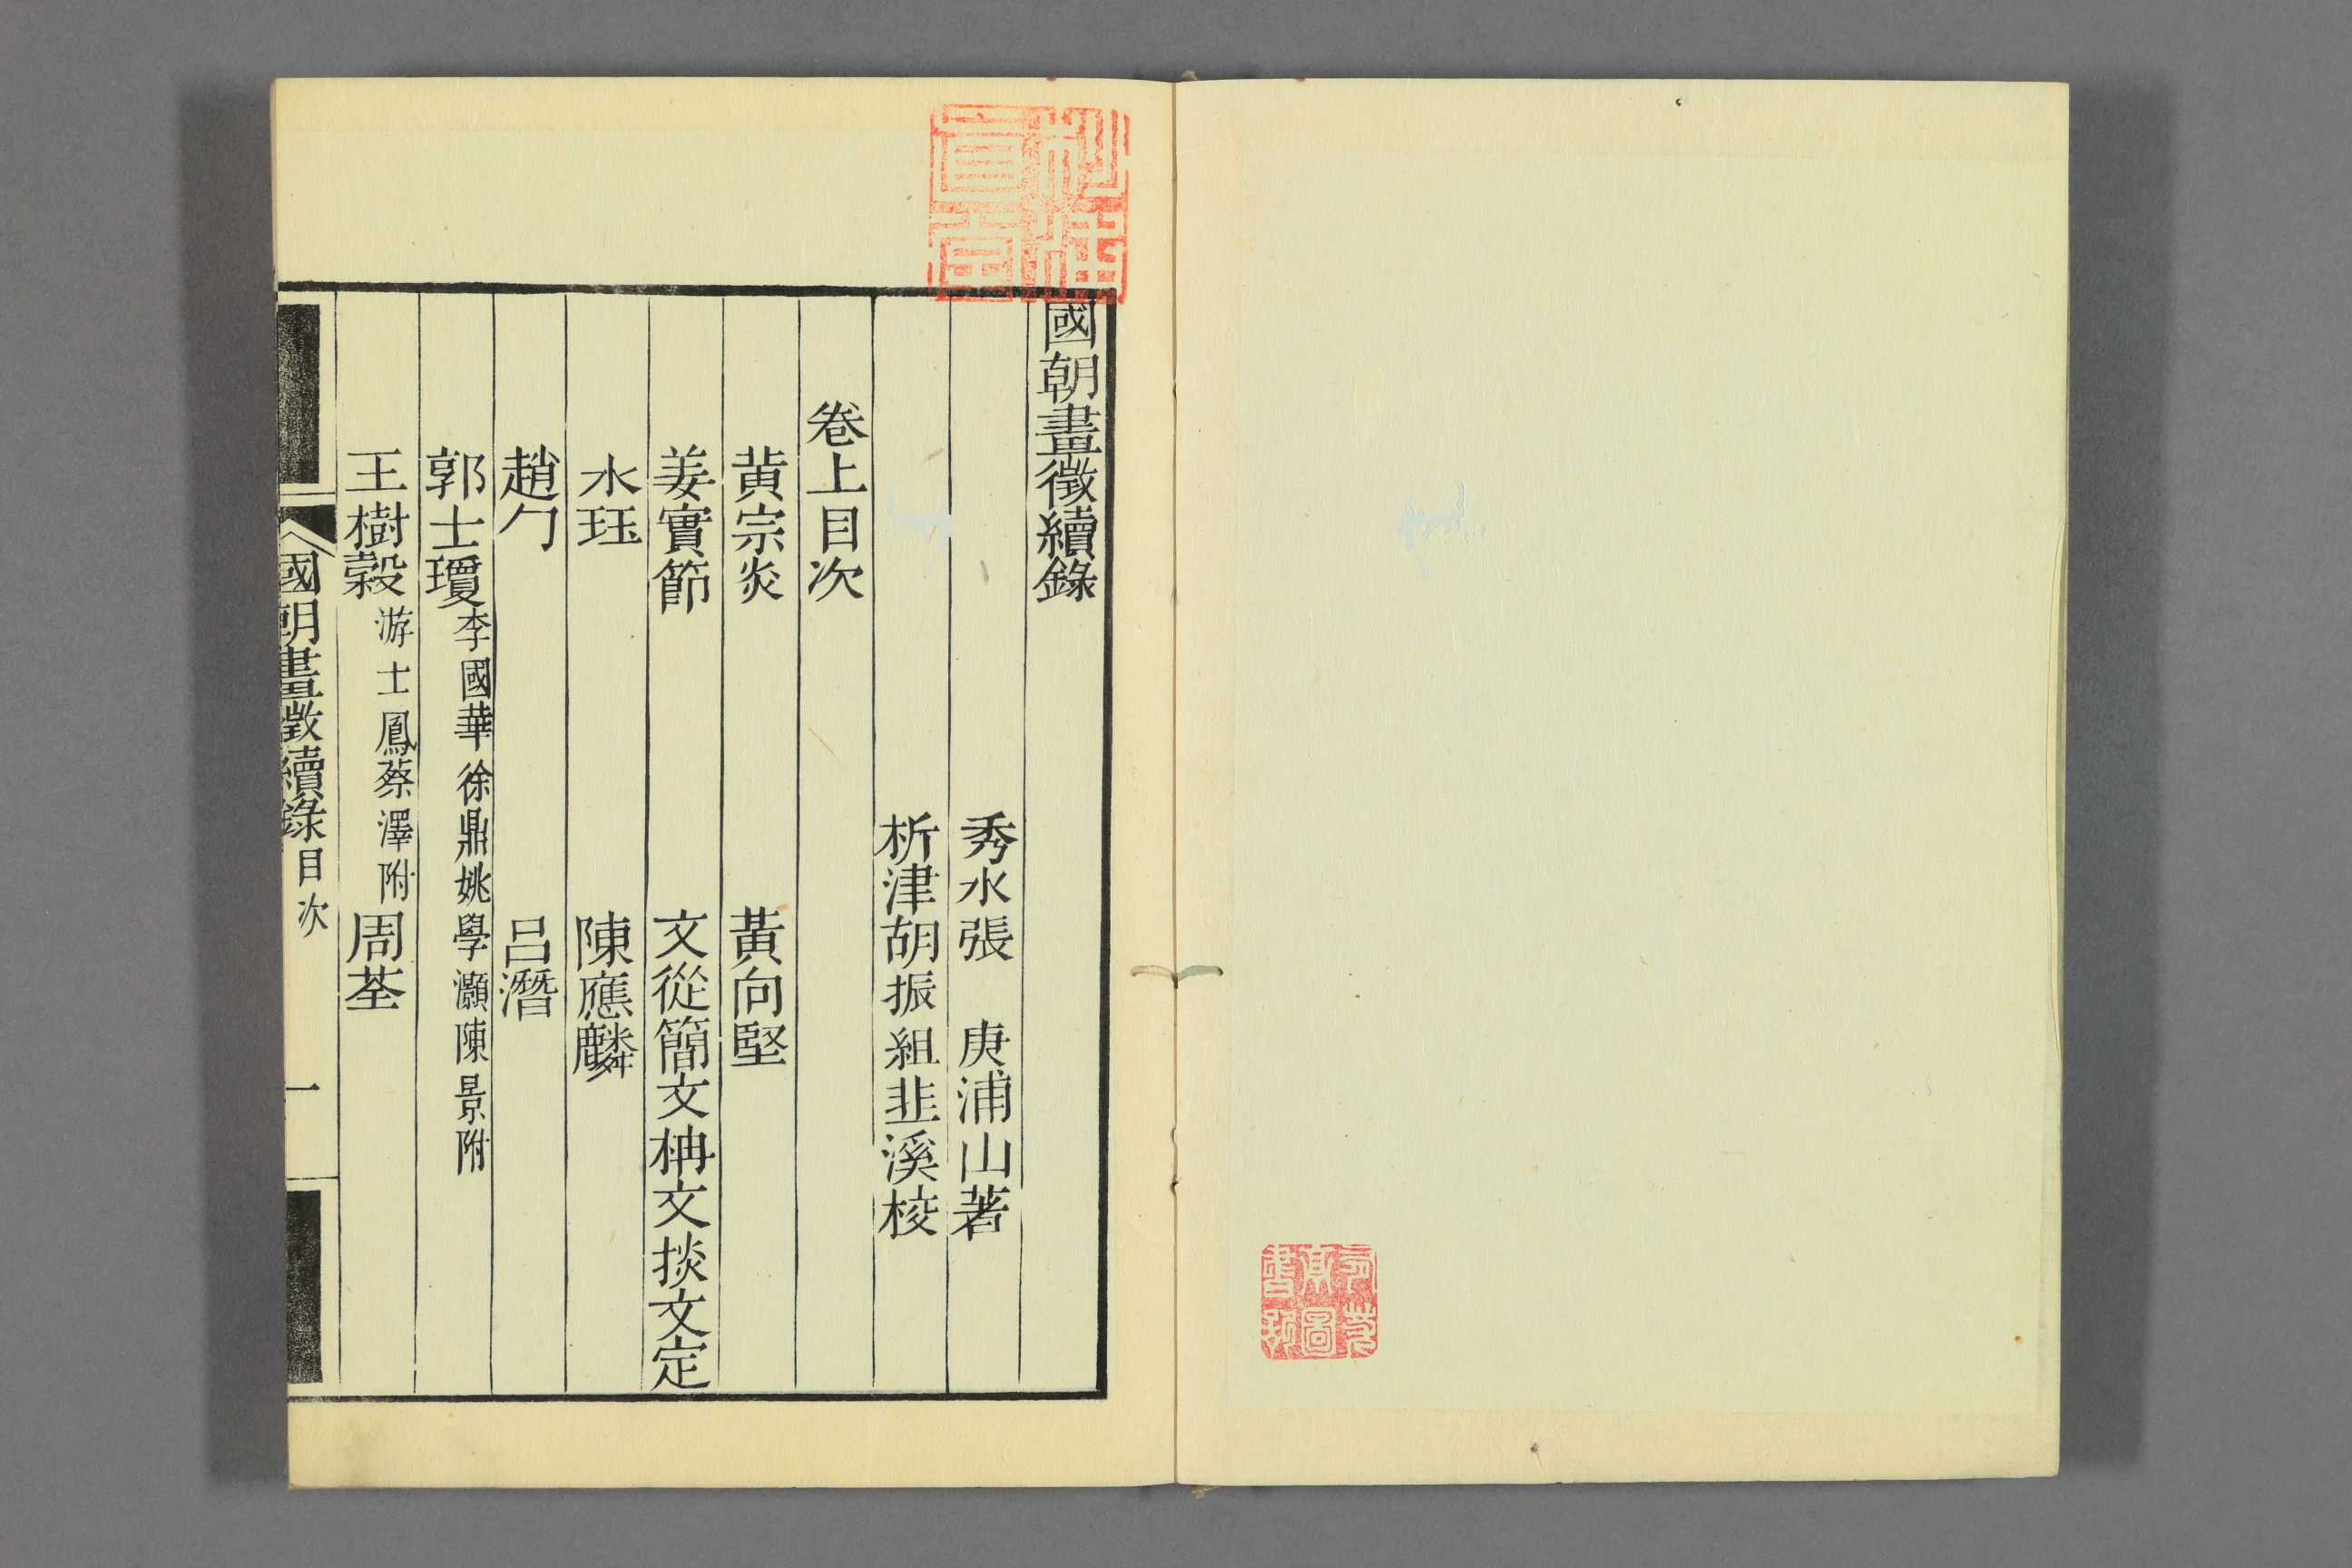 國朝畫徵續錄
秀水張　庚浦山著
析津胡振組韭溪校
卷上目次
黄宗炎　黄向堅
姜實節　文從簡文柟文掞文定
水珏　陳應麟
趙勹　呂潛
郭士瓊李國華徐鼎姚學灝陳景附
王樹榖游士鳳蔡澤附　周荃
國朝畫徵續錄目次　一